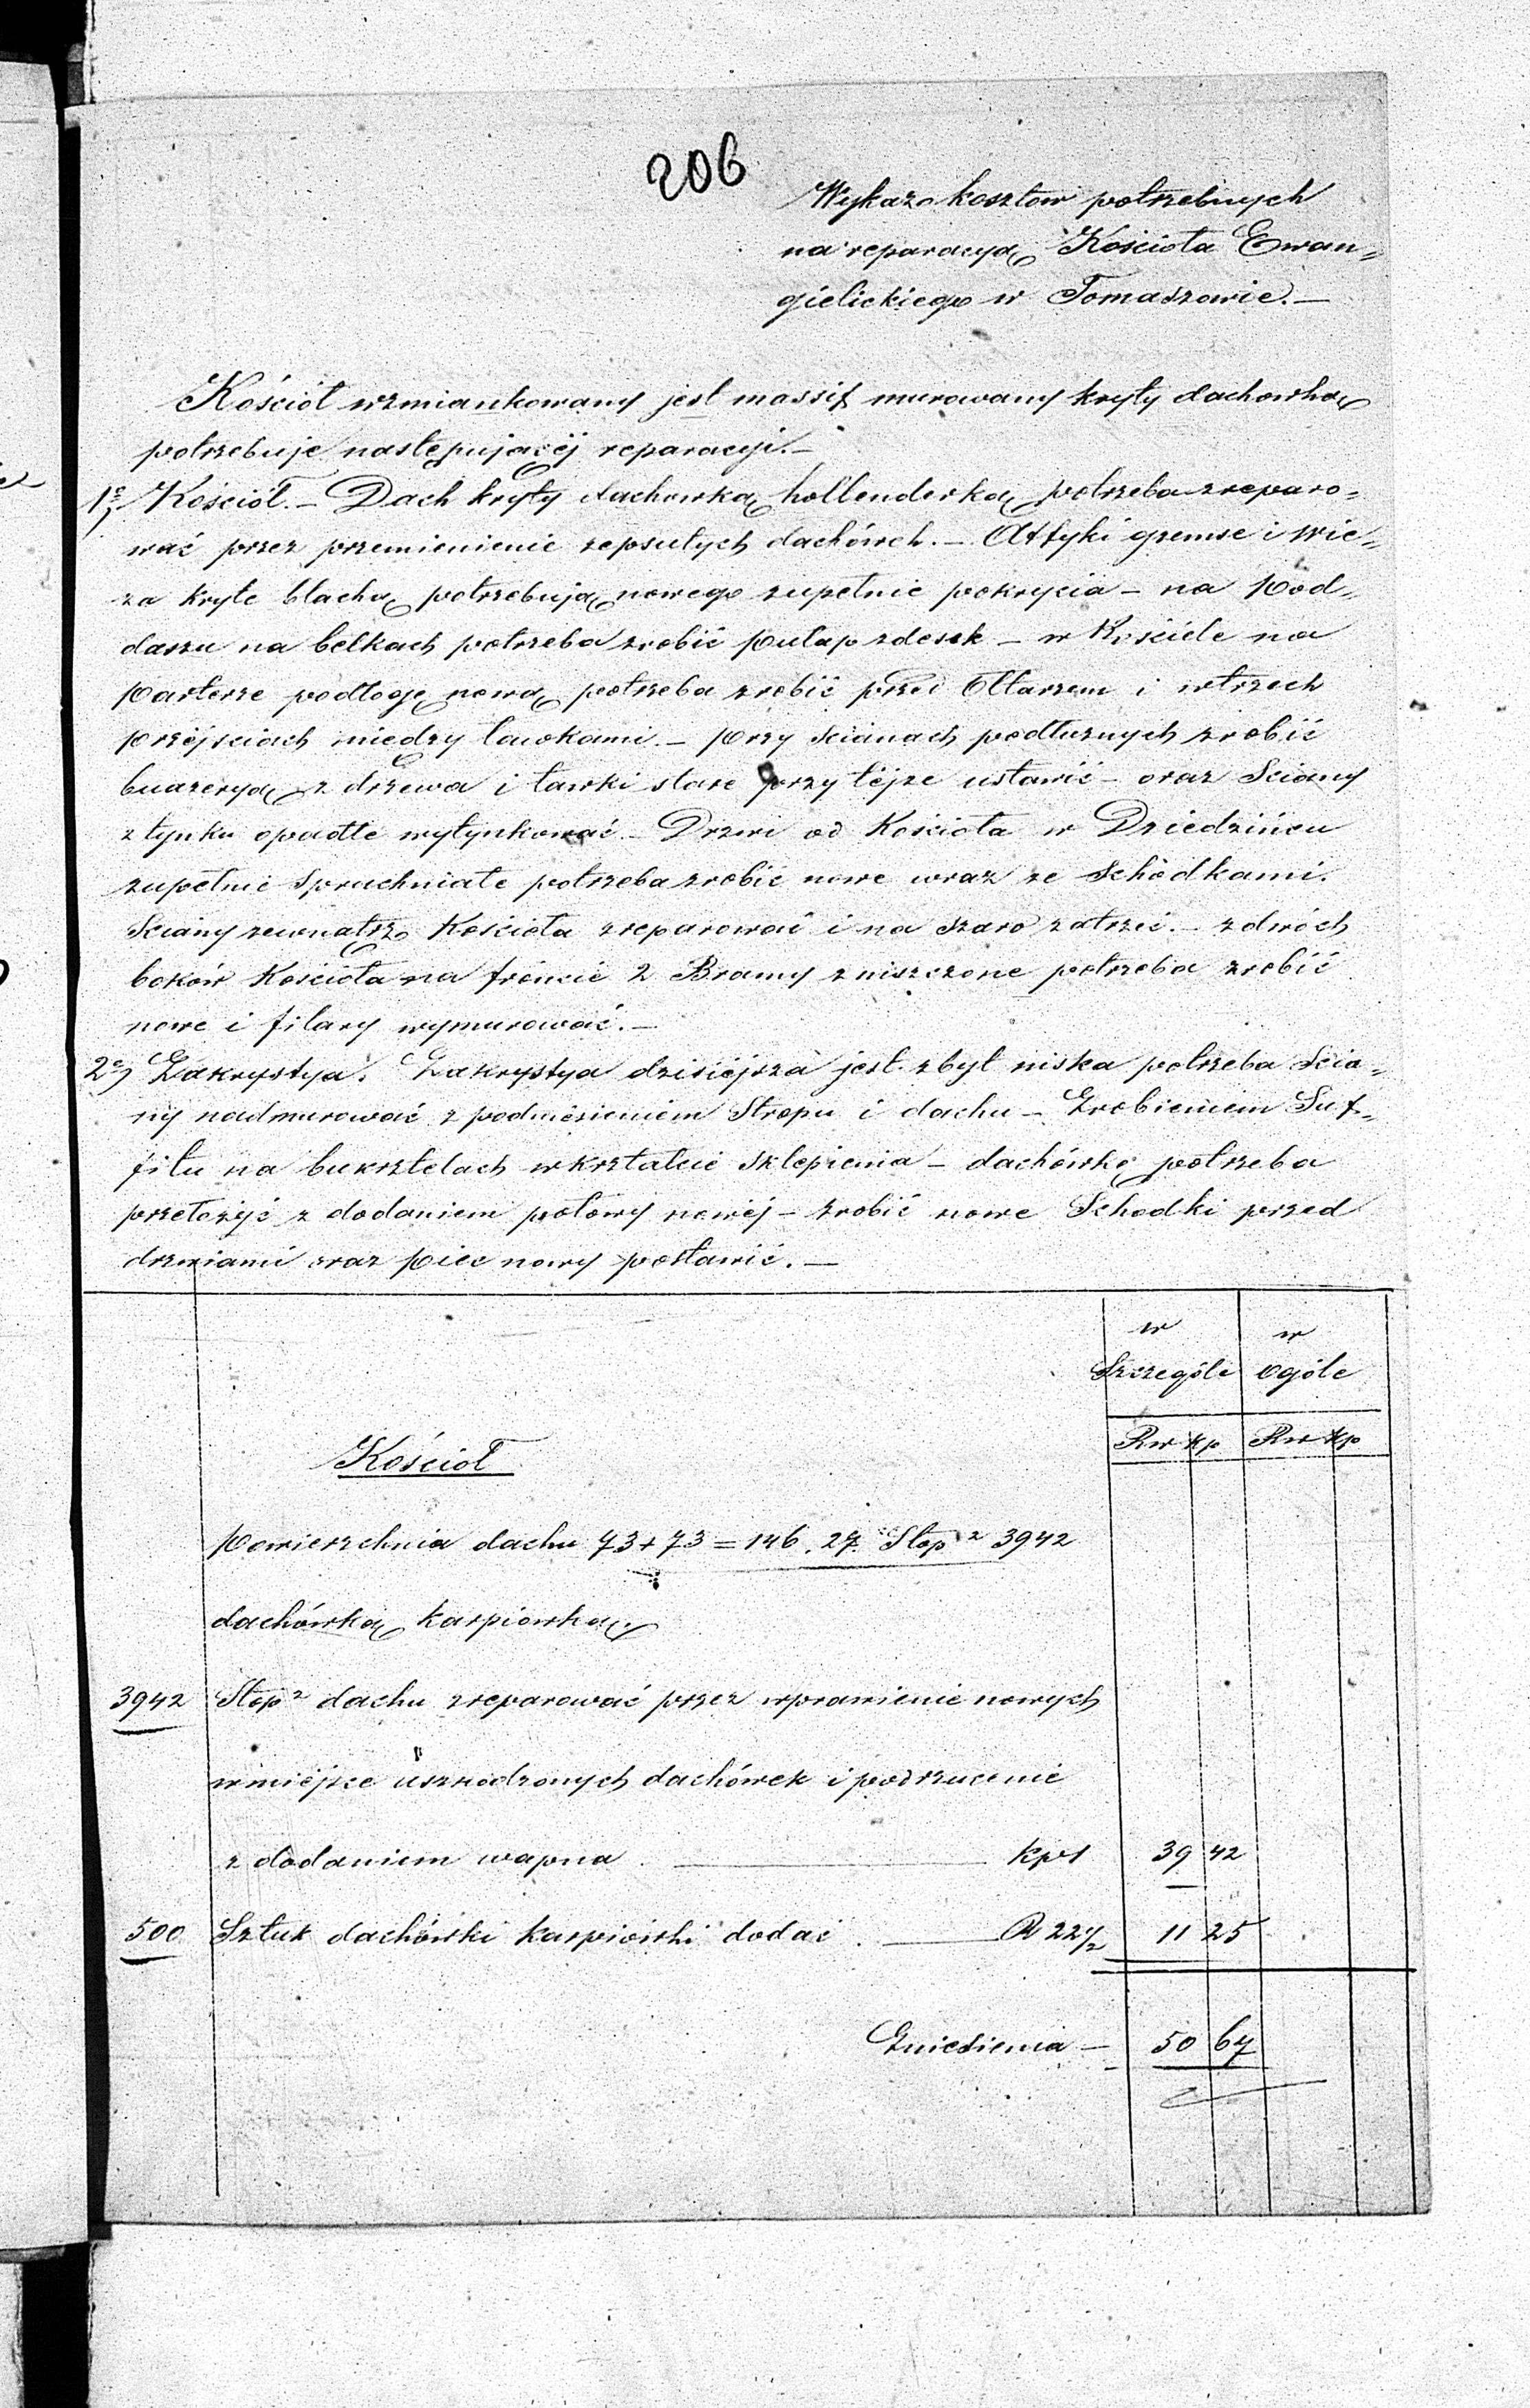 206
Wykaz kosztów potrzebnych
na reparacyą Kościoła Ewan=
gielickiego w Tomaszowie.—
Kościół wzmiankowany jest massif murowany kryty dachówką
potrzebuje następującéj reparacyi.—
1e, Kościół.— Dach kryty dachówką hollenderką potrzeba zreparo=
wać przez przemienienie zepsutych dachówek.— Attyki gzemse i wie=
za kryte blachą potrzebują nowego zupełnie pokrycia — na Pod=
daszu na belkach potrzeba zrobić pułap z desek — w Kościele na
parterze podłogę nową potrzeba zrobić przed Ołtarzem i w trzech
przéjsciach między ławkami.— przy ścianach podłużnych zrobić
buazeryą z drzewa i ławki stare przy téjże ustawić — oraz Sciany
z tynku opadłe wytynkować — Drzwi od Kościoła w Dziedzińcu
zupełnie spruchniałe potrzeba zrobić nowe wraz ze Schódkami.
Sciany zewnątrz Kościoła zreparować i na szaro zatrzeć.— z dwóch
boków Kościoła na froncie 2 Bramy zniszczone potrzeba zrobić
nowe i filary wymurować.—
2e, Zakrystya. Zakrystya dzisiéjsza jest zbyt niska potrzeba Scia=
ny nadmurować z podniesieniem Stropu i dachu — Zrobieniem Suf=
fitu na buksztelach w kształcie sklepienia — dachówkę potrzeba
przełożyć z dodaniem połowy nowéj — zrobić nowe Schodki przed
drzwiami oraz piec nowy postawić.—
w w
Szczególe ogóle
Rs kp Rs kp
Kościół
Powierzchnia dachu 73+73=146.27 Stop² 3942
dachówką karpiówką.
3942 Stop² dachu zreparować przez wprawienie nowych
w miéjsce uszkodzonych dachówek i podrzucenie
z dodaniem wapna — kp 1 39 42
500 Sztuk dachówki karpiówki dodać — R 22½ 11 25
Zniesienia — 50 67